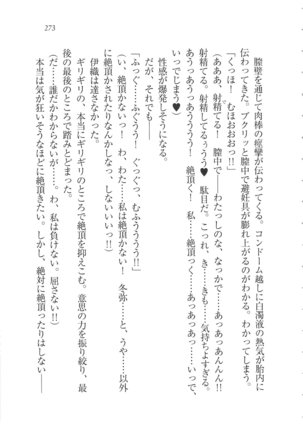 273
膣壁を通じて肉棒の痙攣が伝わってくる。コンドーム越しに白濁液の熱気が胎内に
伝わってきた。ブクリッと膣中で避妊具が膨れ上がるのがわかる。わかってしまう。
「くっほ！　むほおおおっ!!」
(あああ、射精てる！　膣中で――わたっしの、なっ、なっかで――あっあんんん!!
射精てる。射精してるぅうう♥　駄目だ。こっれ、き……きも……気持ちよすぎる。
あうっあうっあうううう！　絶頂く！　私……絶頂っく……あっあっあっ……いっで、
いってじまう♥)
性感が爆発しそうになる。
だが、それでも――
「ふっぐ……ふぐうう！　ぐっぐっ、むふうううう!!」
(い、絶頂かないっ！　わ、わた……私は絶頂かない！　冬弥……っと、うや……以外
に絶頂かされたりなんかしなっ、しないいいっ!!)
伊織は達さなかった。
ギリギリの、本当にギリギリのところで絶頂を抑えこむ。意思の力を振り絞り、最
後の最後のところで踏みとどまった。
(だ……誰だかわからないが……。わ、私は負けない。屈さない!!)
本当は気が狂いそうなほどに絶頂きたい。しかし、絶対に絶頂ったりはしない――